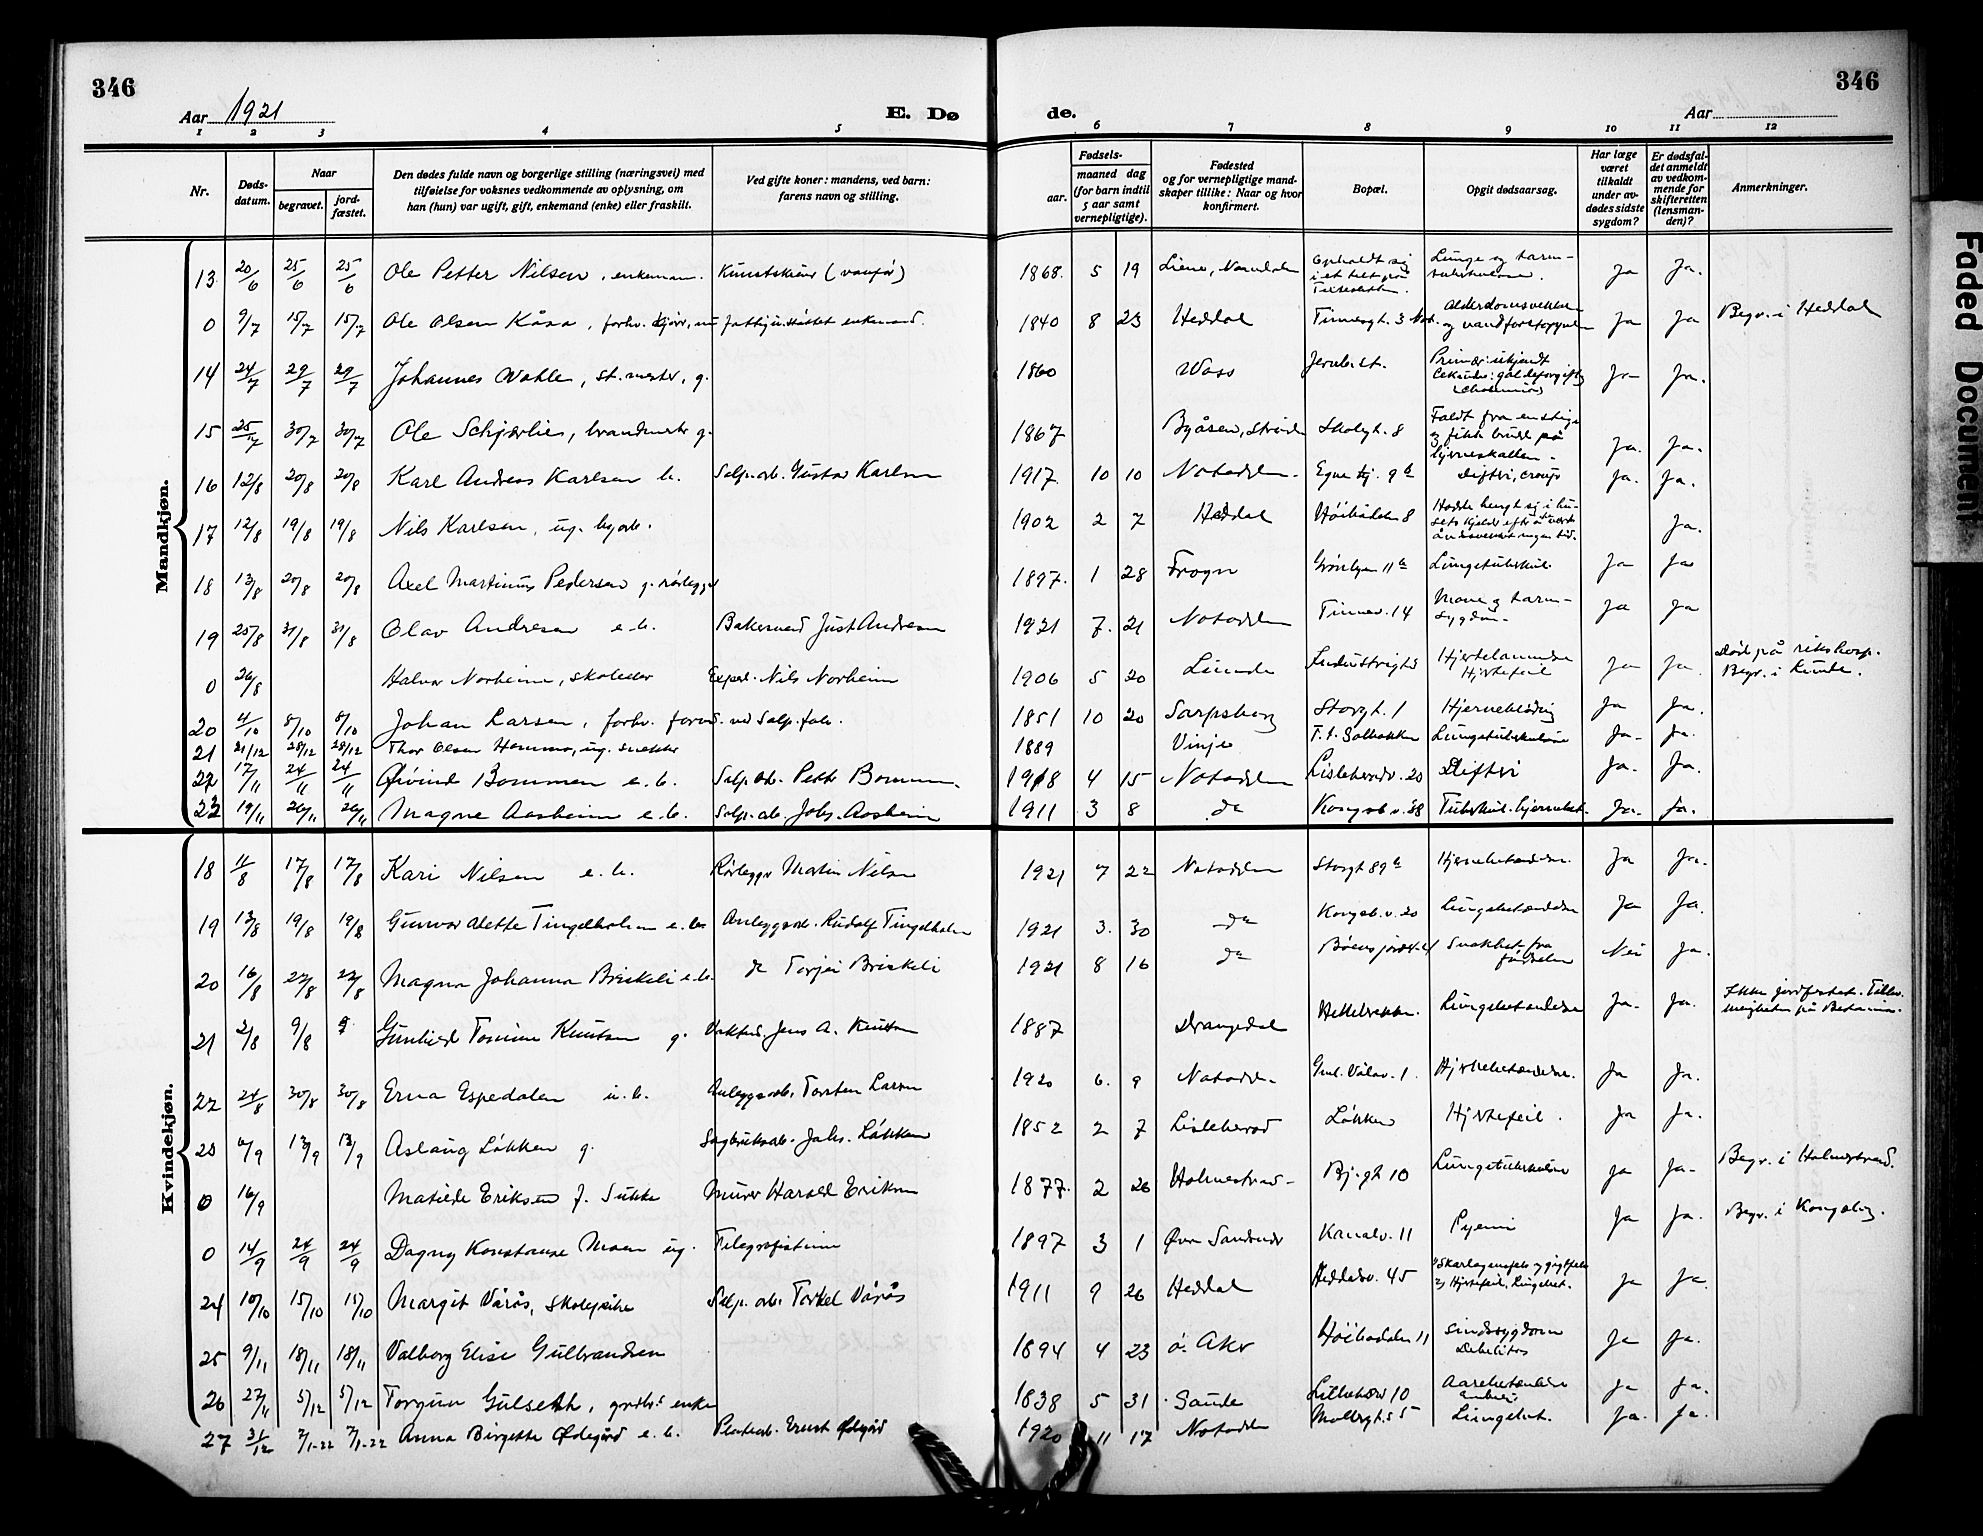 346
346
Aar 1921
E. Dø
de.
Aar
1 2 3 4 5 6 7 8 9 10 11 12
Nr.
Døds-
datum.
Naar
begravet.
jord-
fæstet.
Den dødes fulde navn og borgerlige stilling (næringsvei) med
tilføielse for voksnes vedkommende av oplysning, om
han (hun) var ugift, gift, enkemand (enke) eller fraskilt.
Ved gifte koner: mandens, ved barn:
farens navn og stilling.
Fødsels-
aar.
maaned dag
(for barn indtil
5 aar samt
vernepligtige).
Fødested
og for vernepligtige mand-
skaper tillike: Naar og hvor
konfirmert.
Bopæl.
Opgit dødsaarsag.
Har læge
været
tilkaldt
under av-
dødes sidste
sygdom?
Er dødsfal-
det anmeldt
av vedkom-
mende for
skifteretten
(lensman-
den)?
Anmerkninger.
Mandkjøn.
13 20/6 25/6 25/6 Ole Petter Nilsen, enkem. 1868 5 19 Ja Ja.
0 9/7 15/7 15/7 Ole Olsen Kåsa, forhv. enkemand. 1840 8 23 Heddal Tinnegt. 3 Not. Ja Ja Begr. i Heddal
14 24/7 29/7 29/7 Johannes Vahle, st. mester, g. 1860 Voss Jernb.st. Ja Ja.
15 25/7 30/7 30/7 Ole Schjærlies, brandmester g. 1867 Byåsen, Strinden Skolegt. 8 Faldt fra en stige og fikk brudd på hjerneskallen. Ja. Ja.
16 12/8 20/8 20/8 Karl Andreas Karlsen Salp.arb. Gustav Karlsen 1917 10 10 Notodden Egne hj. 9 b Difteri, croup Ja. Ja.
17 12/8 19/8 19/8 Nils Karlsen, ug. 1902 2 7 Heddal Høibødalen 8 Ja.
18 13/8 20/8 20/8 Axel Martinus Pedersen g. rørlegger 1897 1 28 Frogn Grønbyen 11 a Lungetuberkul. Ja Ja
19 25/8 31/8 31/8 Olav Andresen e.b. Bakersvend Just Andresen 1921 7. 21 Notodden Tinnev. 14 Mave og tarmsygdom Ja Ja
0 26/8 Halvor Norheim, skoleelev Exped. Nils Norheim 1906 5 20 Lunde Industrigt. Hjertelammelse Hjertefeil Ja Ja. Død på rikshosp. Begr. i Lunde.
20 4/10 8/10 8/10 Johan Larsen, forhv. ved Salp.fab. 1851 10 20 Sarpsborg Storgt. 1 Hjerneblødning Ja Ja.
21 21/12 28/12 28/12 Thor Olsen Hommo, ug. snekker 1889 Vinje T.t. Solbakken Lungetuberkulose Ja Ja.
22 17/11 24/11 24/11 Øivind Bommen e.b. Salp.arb. Petter Bommen 1918 4 15 Notodden Lisleherdv. 20 Difteri Ja. Ja.
23 19/11 26/11 26/11 Magne Aasheim e.b. Salp.arb. Johs. Aasheim 1911 3 8 do Kongsb.v. 38 Tuberkul. hjernebet. Ja. Ja.
Kvindekjøn.
18 11/8 17/8 17/8 Kari Nilsen e.b. Rørlegger Martin Nilsen 1921 7 22 Notodden Storgt 89 b Hjernebetændelse Ja Ja.
19 13/8 19/8 19/8 Gunvor Alette Tingelholm e.b. Anleggsarb. Rudolf Tingelholm 1921 3. 30 do Kongsb.v. 20 Lungebetændelse Ja Ja.
20 16/8 22/8 22/8 Magna Johanna Briskeli e.b. do Torjei Briskeli 1921 8 16 do Svakhet fra fødselen Nei Ja.
21 2/8 9/8 Gunhild Tomine Knutsen g. Jens A. Knutsen 1887 Drangedal Lungebetændelse Ja. Ja. Ikke jordfestet.
22 24/8 30/8 30/8 Erna Espedalen u.b. Anleggsarb. Torsten Larsen 1920 6. 9 Notodden Hjernebetændelse. Ja Ja.
23 6/9 13/9 13/9 Aslaug Løkken g. Sagbruksarb. Johs. Løkken 1852 2 7 Lisleherad Løkken Hjertefeil. Ja Ja.
0 16/9 Matilde Eriksen f. Sukke Murer Harald Eriksen 1877 2 26 Holmestrand Bj.gt 10 Lungetuberkulose Ja Ja Begr. i Holmestrand.
0 14/9 24/9 24/9 Dagny Konstanse Moen ug. Telegrafistinne 1897 3 1 Øvre Sandsvær Kanalv. 11 Pyemi Ja Ja. Begr. i Kongsberg.
24 10/10 15/10 15/10 Margit Vårås, skolepike Salp. arb. Torkel Vårås 1911 9 26 Heddal Heddalsv. 45 Ja Ja.
25 9/11 18/11 18/11 Valborg Elise Gulbrandsen 1894 4 23 ø. Aker Høibødalen 11 Sindssygdom Debilitas Ja Ja.
26 27/11 5/12 5/12 Torgun Gulseth, enke 1838 5 31 Saude Lilleherd 10 Aarebetændelse Emboli Ja Ja.
27 31/12 7/1-22 7/1-22 Anna Birgette Ødegård e.b. Ernst Ødegård 1920 11 17 Notodden Møllergt. 55 Lungebet. Ja. Ja.
Faded Document